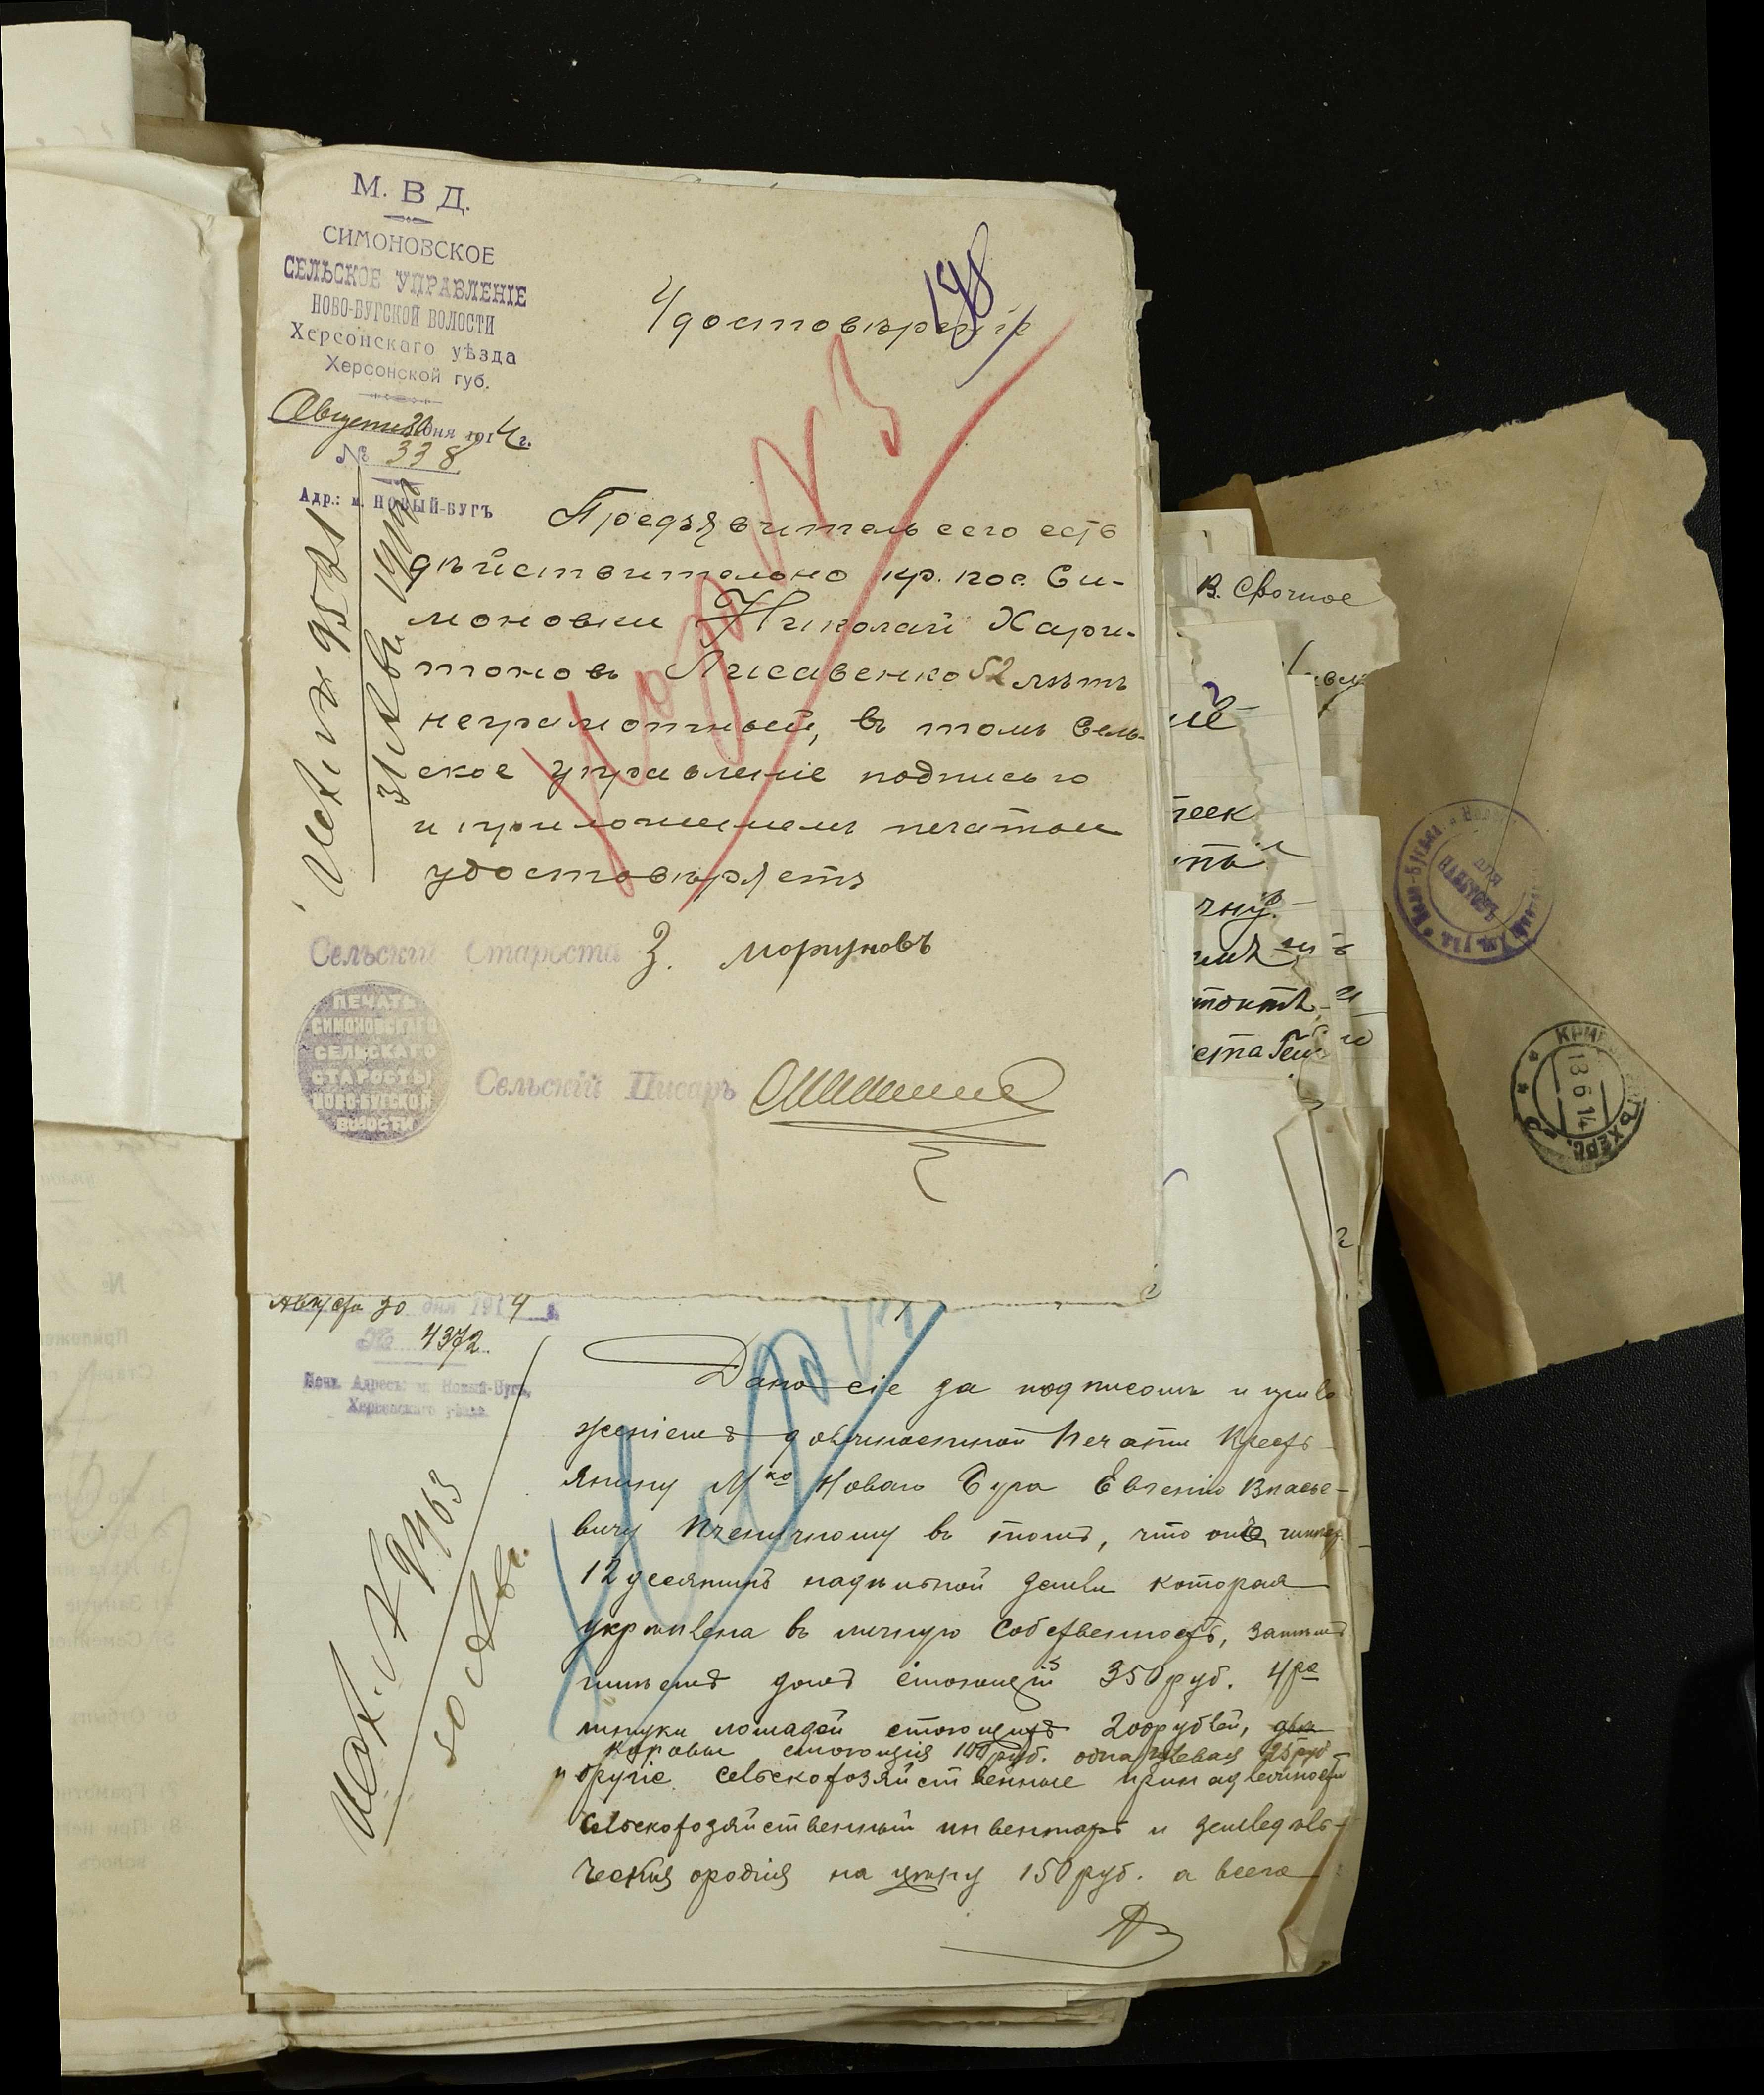 М. В Д.
СИМОНОВСКОЕ
СЕЛЬСКОЕ УПРАВЛЕНІЕ
НОВО-БУГСКОЙ ВОЛОСТИ
Херсонскаго уѣзда
Херсонской губ.
Августа 30 дня 1914 г.
№ 338
Адр.: м. НОВЫЙ-БУГЪ
198
Удостовѣреніе
Предъявитель сего есть
дѣйствительно кр. пос. Си-
моновки Николай Хари-
тоновъ Лисавенко 52 лѣтъ
неграмотный, въ томъ Сель-
ское управленіе подписью
и приложеніемъ печатью
удостовѣряетъ
Сельскій Староста З. Моруновъ
ПЕЧАТЬ
СИМОНОВСКАГО
СЕЛЬСКАГО
СТАРОСТЫ
НОВО-БУГСКОЙ
ВОЛОСТИ
Сельскій Писарь
31 Авг. 1914
В. Срочное
КРИВ
13 6 14
ХЕРС.
Августа 30 дня 1914 г.
№ 4372.
Почт. Адресъ: м. Новый-Бугъ,
Херсонскаго уѣзда
30 Авг.
Дано сіе за подписомъ и прило
женіемъ должностной печати Кресть-
янину Мко Новаго Буга Евгенію Власье-
вичу Пченичному въ томъ, что онъ имѣетъ
12 десятинъ надѣльной земли которая
укрѣплена въ личную собственность, затѣмъ
имѣетъ домъ стоющій 350 руб. 4ре
штуки лошадей стоющихъ 200 рублей, две
коровы стоющія 100 руб. одна 25 руб
и другіе сельскохозяйственные принадлежности
сельскохозяйственный инвентарь и земледѣль-
ческія орудія на цѣну 150 руб. а всего